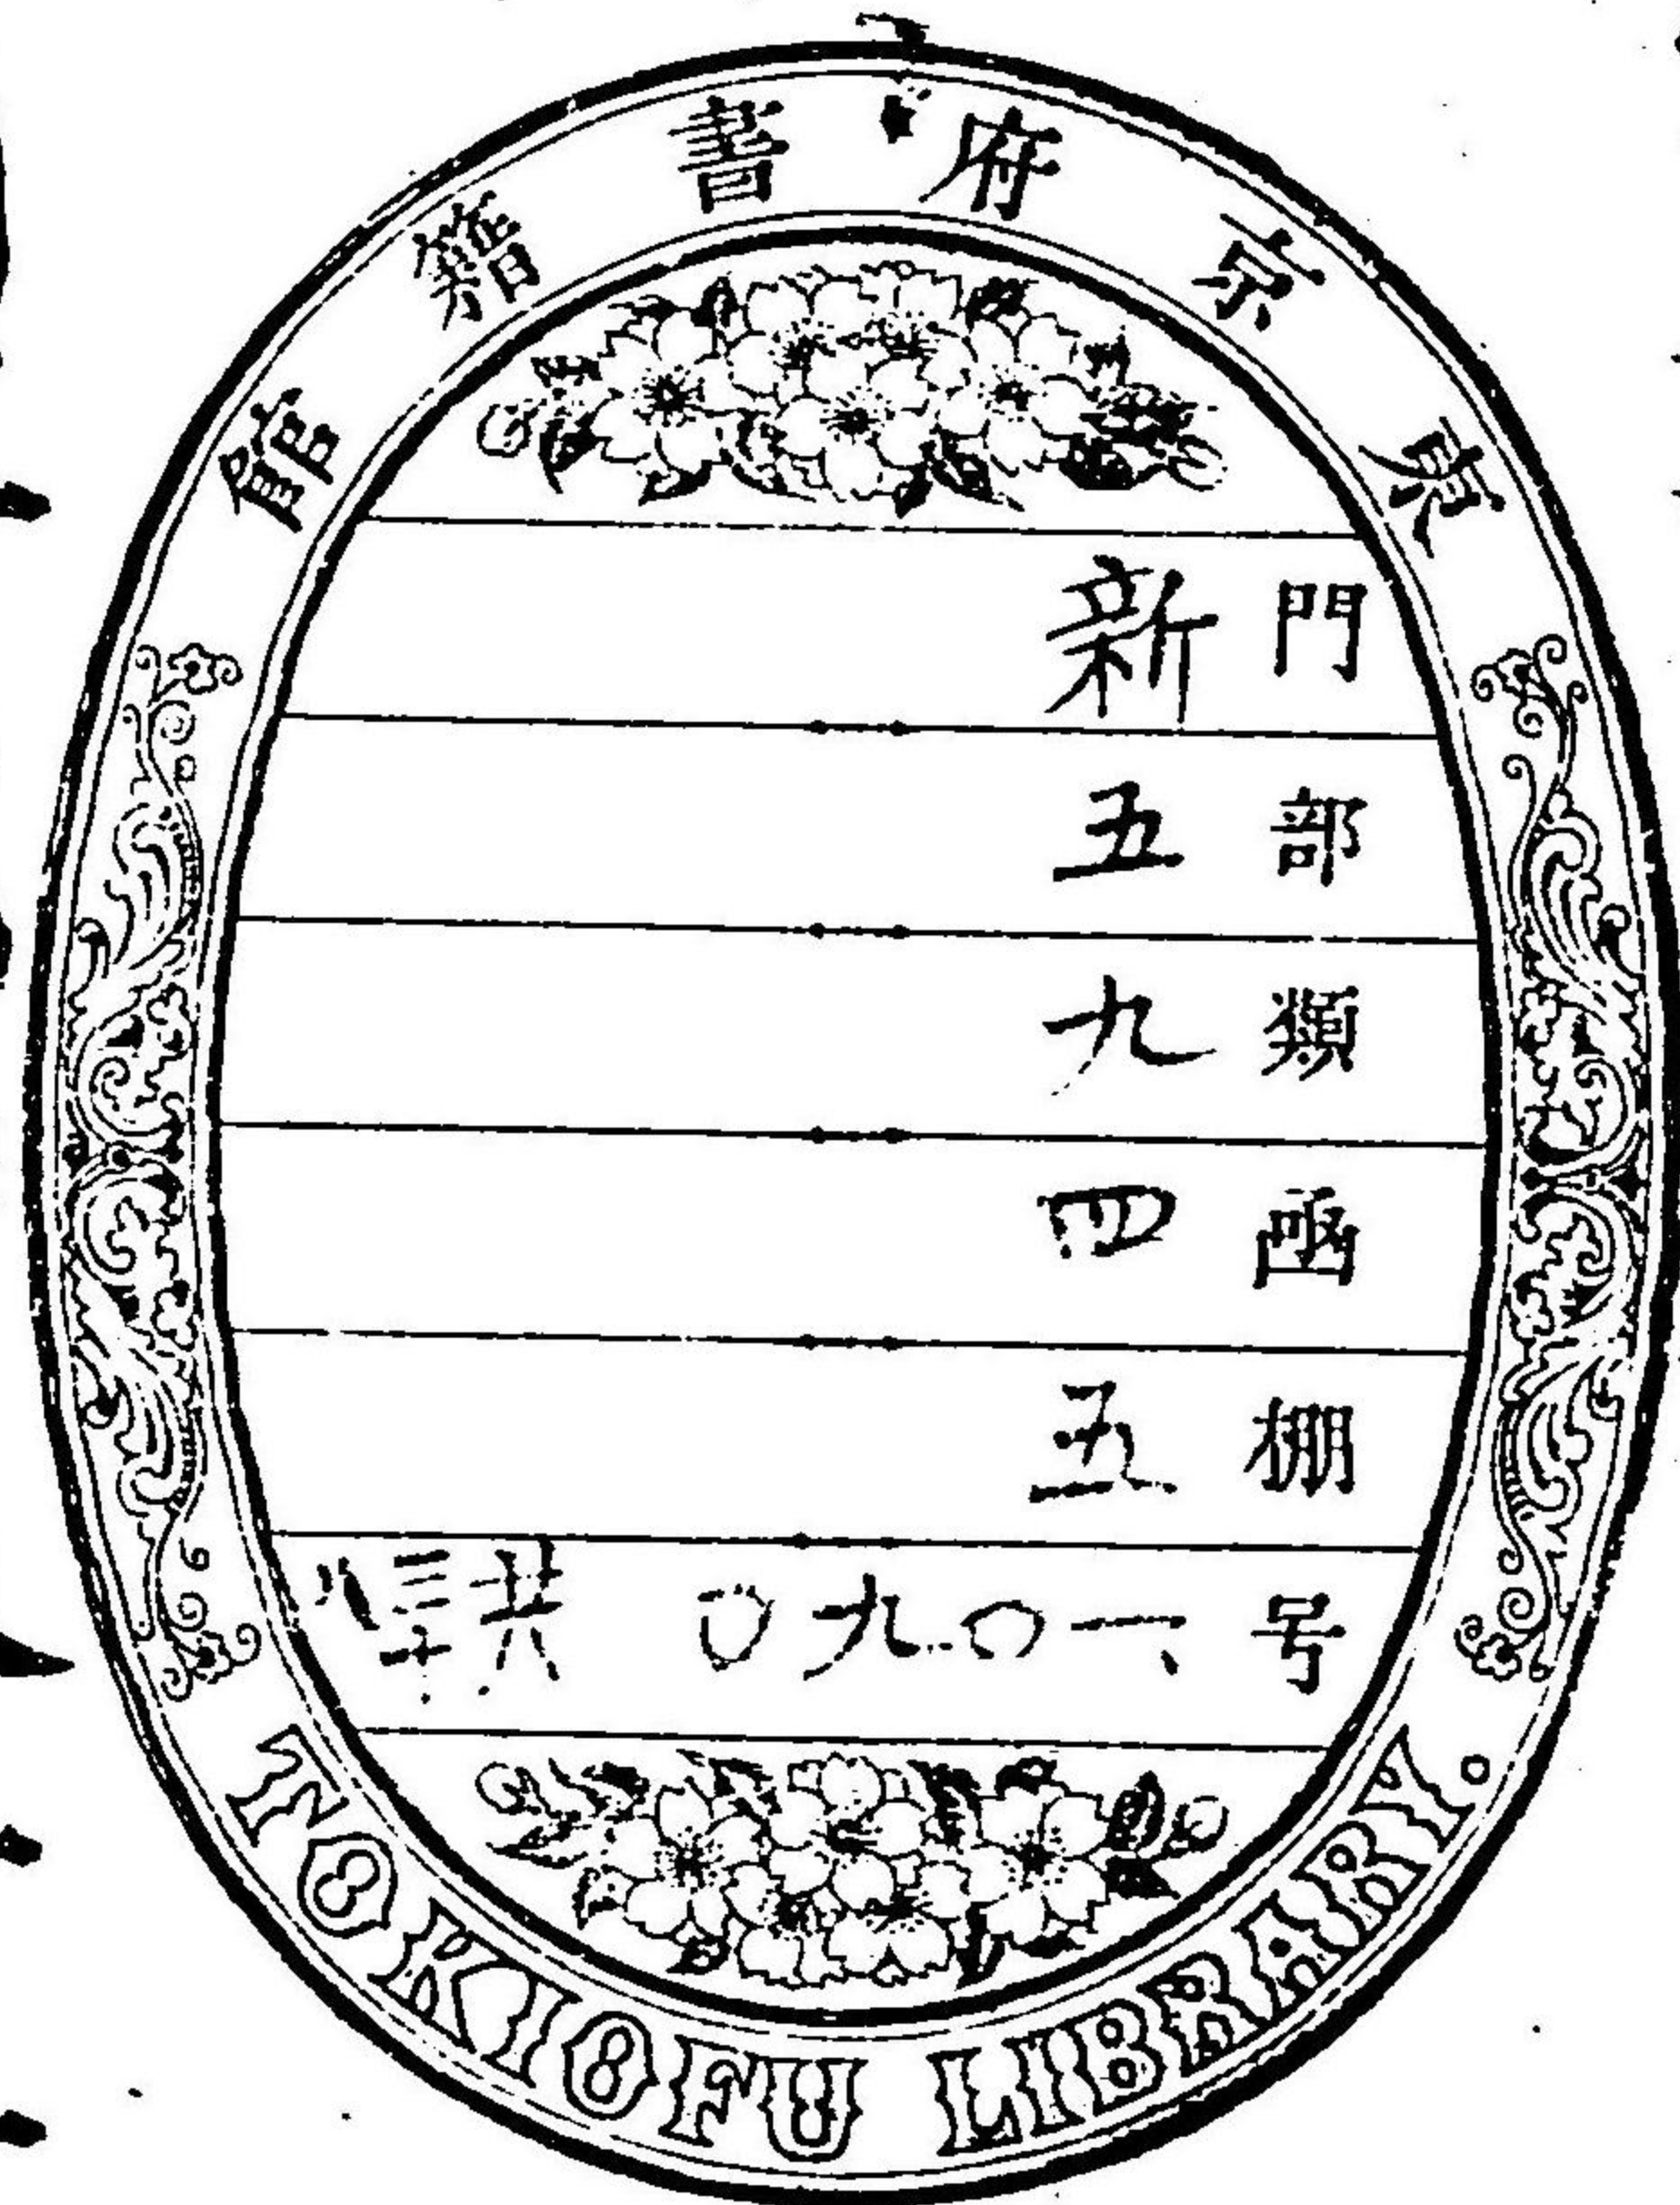 東京府書籍館
門 新
部 五
類 九
函 四
棚 五
号 一〇九〇 共
TOKIOFU LIBRARY.